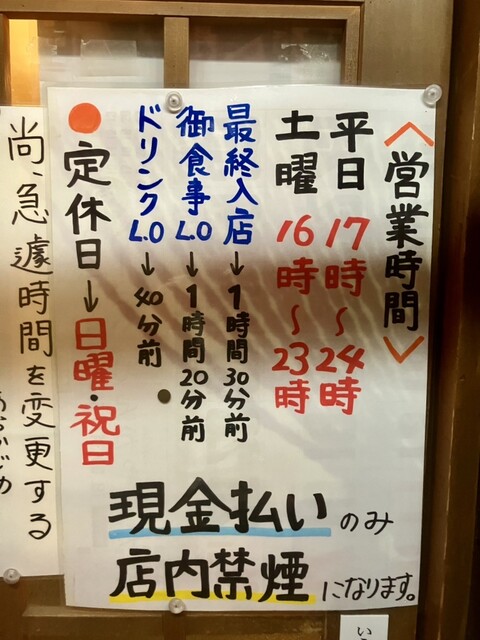 〈営業時間〉
平日 17時～24時
土曜 16時～23時
最終入店→1時間30分前
御食事L.O→1時間20分前
ドリンクL.O→40分前
●定休日→日曜・祝日
現金払いのみ
店内禁煙になります。
尚、急遽時間を変更する
あらかじめ
い